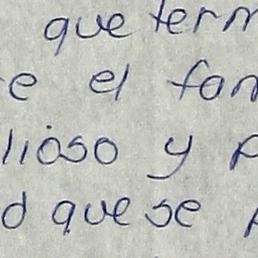 que term
e el fan
lioso y p
d que se p